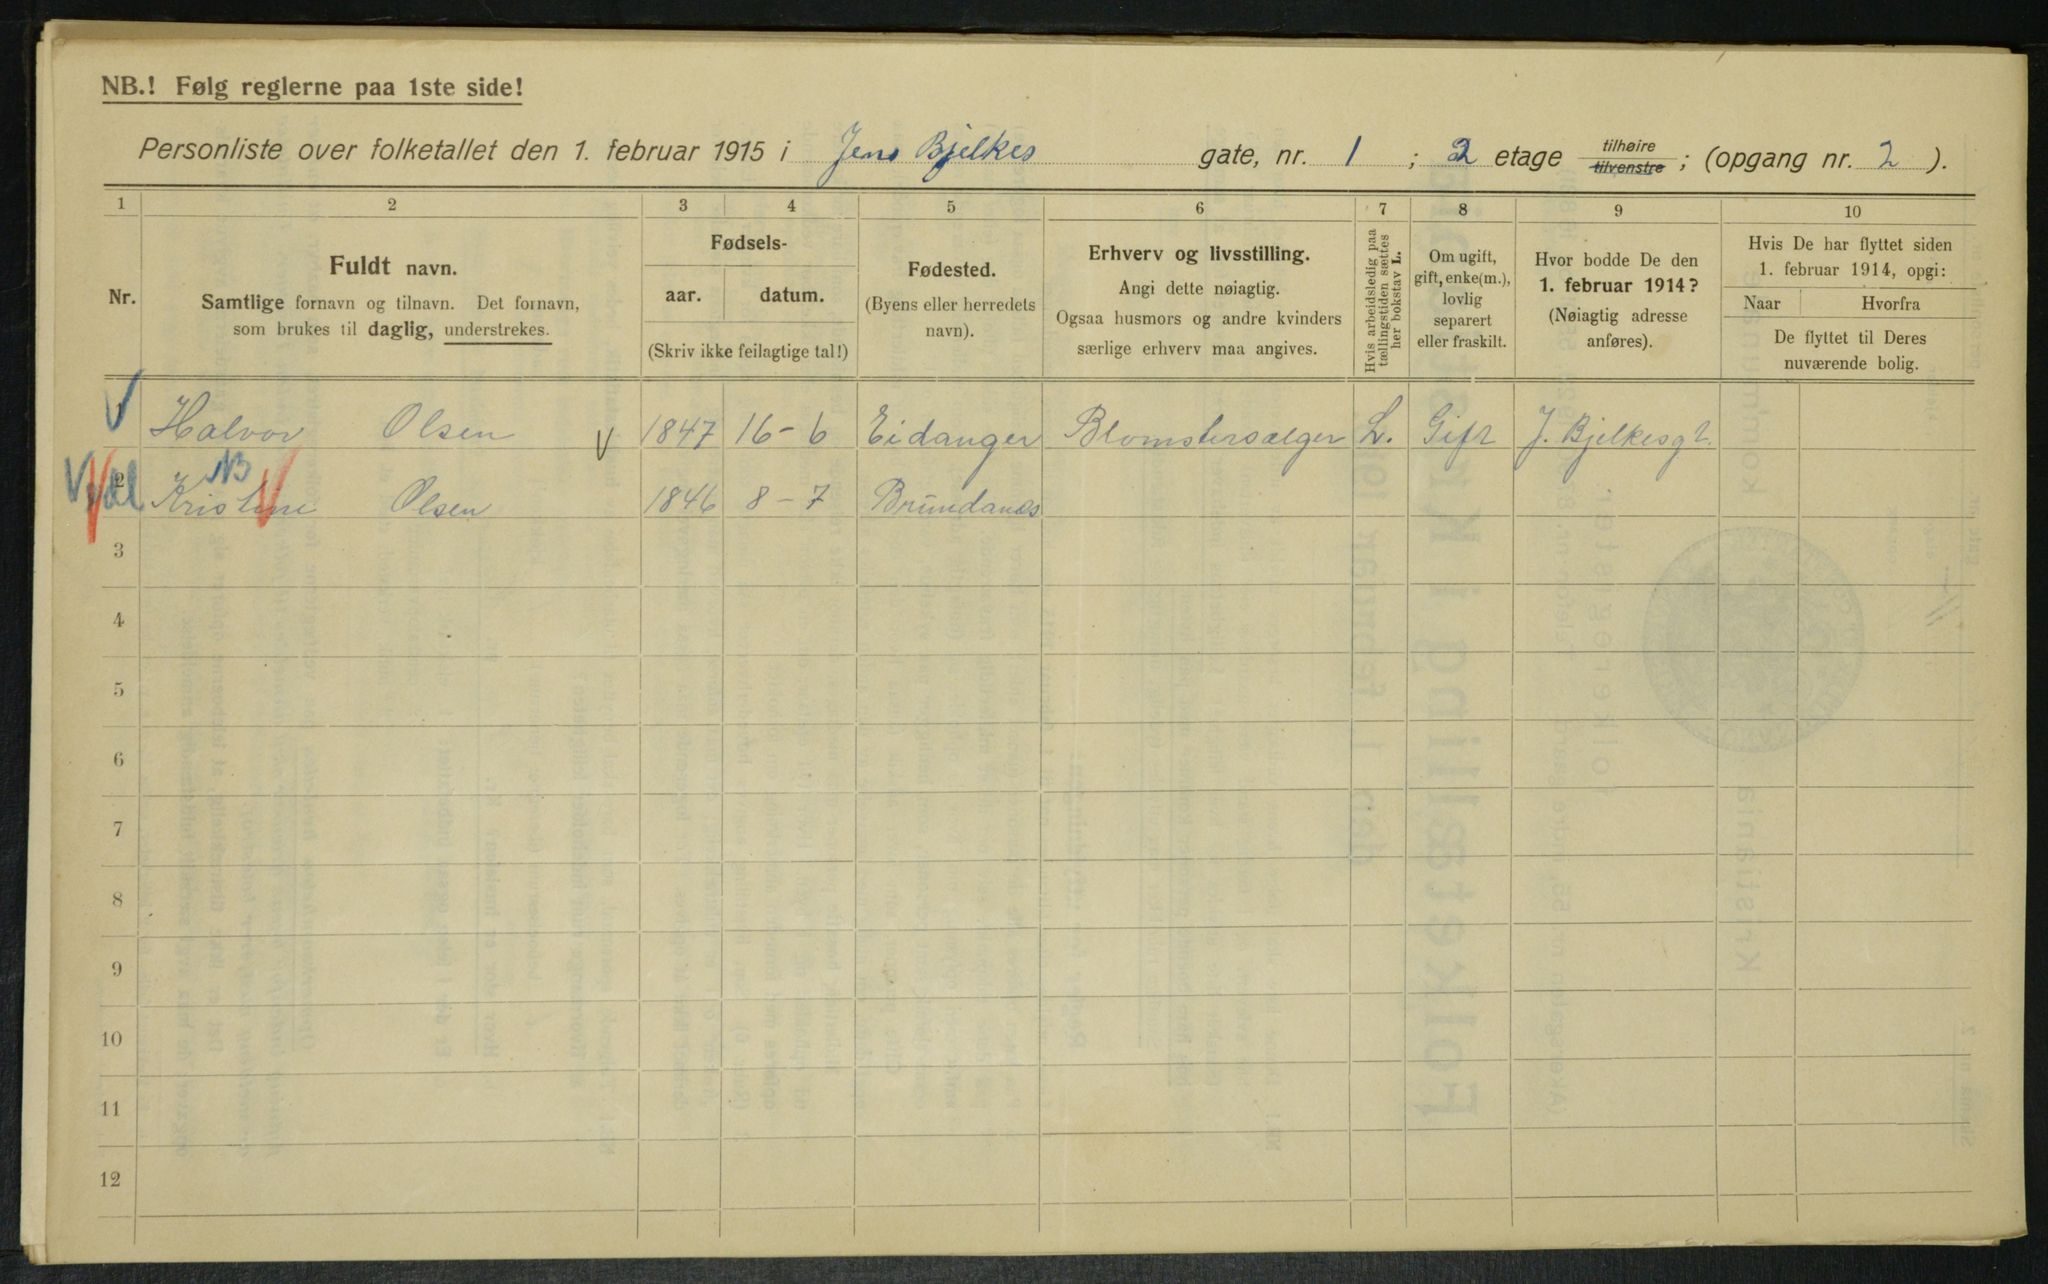 NB.! Følg reglerne paa 1ste side!
Personliste over folketallet den 1. februar 1915 i Jens Bjelkes gate, nr. 1 ; 2 etage tilhøire tilvenstre ; (opgang nr. 2 ).
1 2 3 4 5 6 7 8 9 10
Nr.
Fuldt navn.
Samtlige fornavn og tilnavn. Det fornavn,
som brukes til daglig, understrekes.
Fødsels-
aar. datum.
(Skriv ikke feilagtige tal!)
Fødested.
(Byens eller herredets
navn).
Erhverv og livsstilling.
Angi dette nøiagtig.
Ogsaa husmors og andre kvinders
særlige erhverv maa angives.
Hvis arbeidsledig paa
tællingstiden sættes
her bokstav L.
Om ugift,
gift, enke(m.),
lovlig
separert
eller fraskilt.
Hvor bodde De den
1. februar 1914?
(Nøiagtig adresse
anføres).
Hvis De har flyttet siden
1. februar 1914, opgi:
Naar Hvorfra
De flyttet til Deres
nuværende bolig.
1 Halvor Olsen 1847 16-6 Eidanger Blomstersælger L. Gift J. Bjelkesgt.
NB
2 Kristine Olsen 1846 8-7 Brundanæs
3
4
5
6
7
8
9
10
11
12